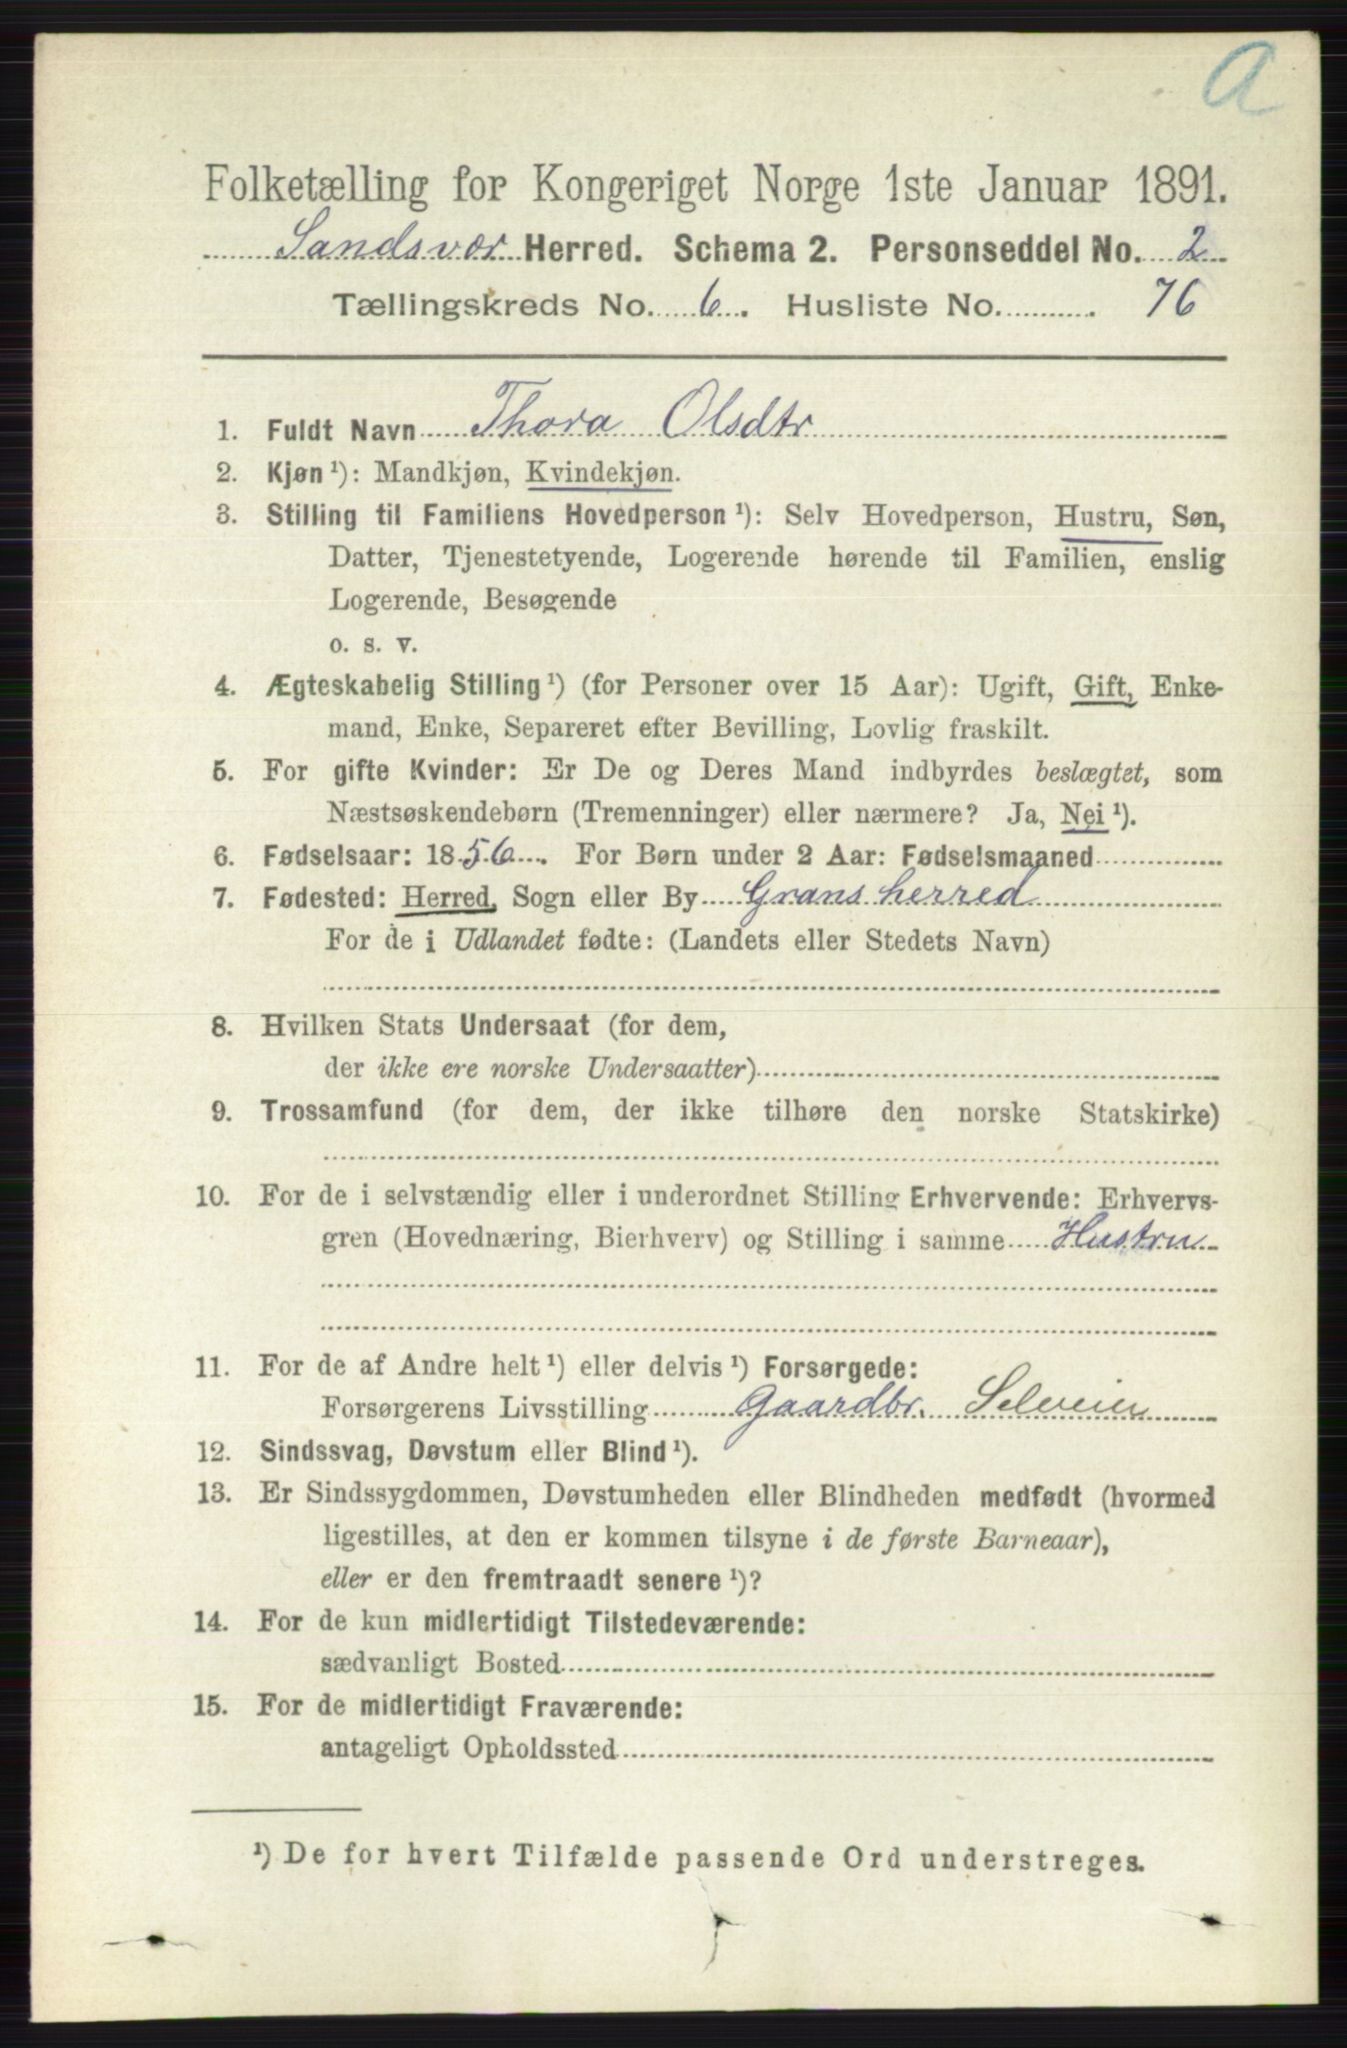 a
Folketælling for Kongeriget Norge 1ste Januar 1891.
Sandsvær Herred. Schema 2. Personseddel No. 2
Tællingskreds No. 6. Husliste No. 76
1. Fuldt Navn Thora Olsdtr
2. Kjøn ¹): Mandkjøn, Kvindekjøn.
3. Stilling til Familiens Hovedperson ¹): Selv Hovedperson, Hustru, Søn,
Datter, Tjenestetyende, Logerende hørende til Familien, enslig
Logerende, Besøgende
o. s. v.
4. Ægteskabelig Stilling ¹) (for Personer over 15 Aar): Ugift, Gift, Enke-
mand, Enke, Separeret efter Bevilling, Lovlig fraskilt.
5. For gifte Kvinder: Er De og Deres Mand indbyrdes beslægtet, som
Næstsøskendebørn (Tremenninger) eller nærmere? Ja, Nei ¹).
6. Fødselsaar: 1856. For Børn under 2 Aar: Fødselsmaaned
7. Fødested: Herred, Sogn eller By Gransherred
For de i Udlandet fødte: (Landets eller Stedets Navn)
8. Hvilken Stats Undersaat (for dem,
der ikke ere norske Undersaatter)
9. Trossamfund (for dem, der ikke tilhøre den norske Statskirke)
10. For de i selvstændig eller i underordnet Stilling Erhvervende: Erhvervs-
gren (Hovednæring, Bierhverv) og Stilling i samme Hustru
11. For de af Andre helt ¹) eller delvis ¹) Forsørgede:
Forsørgerens Livsstilling Gaardbr. Selveier
12. Sindssvag, Døvstum eller Blind ¹).
13. Er Sindssygdommen, Døvstumheden eller Blindheden medfødt (hvormed
ligestilles, at den er kommen tilsyne i de første Barneaar),
eller er den fremtraadt senere ¹)?
14. For de kun midlertidigt Tilstedeværende:
sædvanligt Bosted
15. For de midlertidigt Fraværende:
antageligt Opholdssted
¹) De for hvert Tilfælde passende Ord understreges.